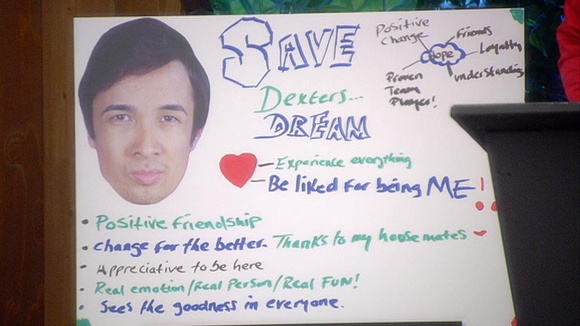 SAVE
Dexters...
DREAM
Positive Change
Friends
Loyalty
Hope
Understanding
Proven Team Player!
Experience everything
Be liked for being ME!
• Positive Friendship
• change for the better. Thanks to my housemates
• Appreciative to be here
• Real emotion/Real Person/Real FUN!
• Sees the goodness in everyone.